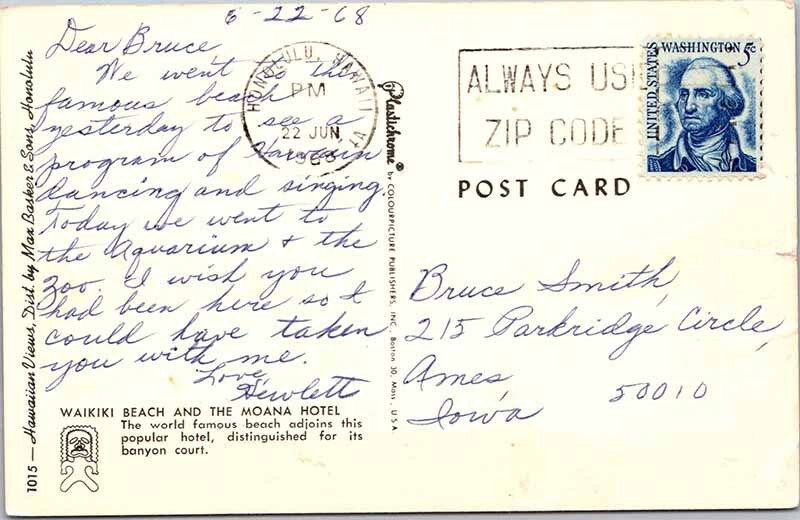 6-22-68
Dear Bruce
We went to the
famous beach
yesterday to see a
program of Hawaiian
dancing and singing.
Today we went to
the Aquarium & the
zoo. I wish you
had been here so I
could have taken
you with me.
Love,
Hewlett
WAIKIKI BEACH AND THE MOANA HOTEL
The world famous beach adjoins this
popular hotel, distinguished for its
banyon court.
1015 — Hawaiian Views, Dist. by Max Basker & Sons, Honolulu
HONOLULU, HAWAII
PM
22 JUN
1968
Plastichrome® by COLOURPICTURE PUBLISHERS, INC., Boston 30, Mass., U.S.A.
ALWAYS USE
ZIP CODE
UNITED STATES
WASHINGTON 5¢
POST CARD
Bruce Smith,
215 Parkridge Circle,
Ames 50010
Iowa